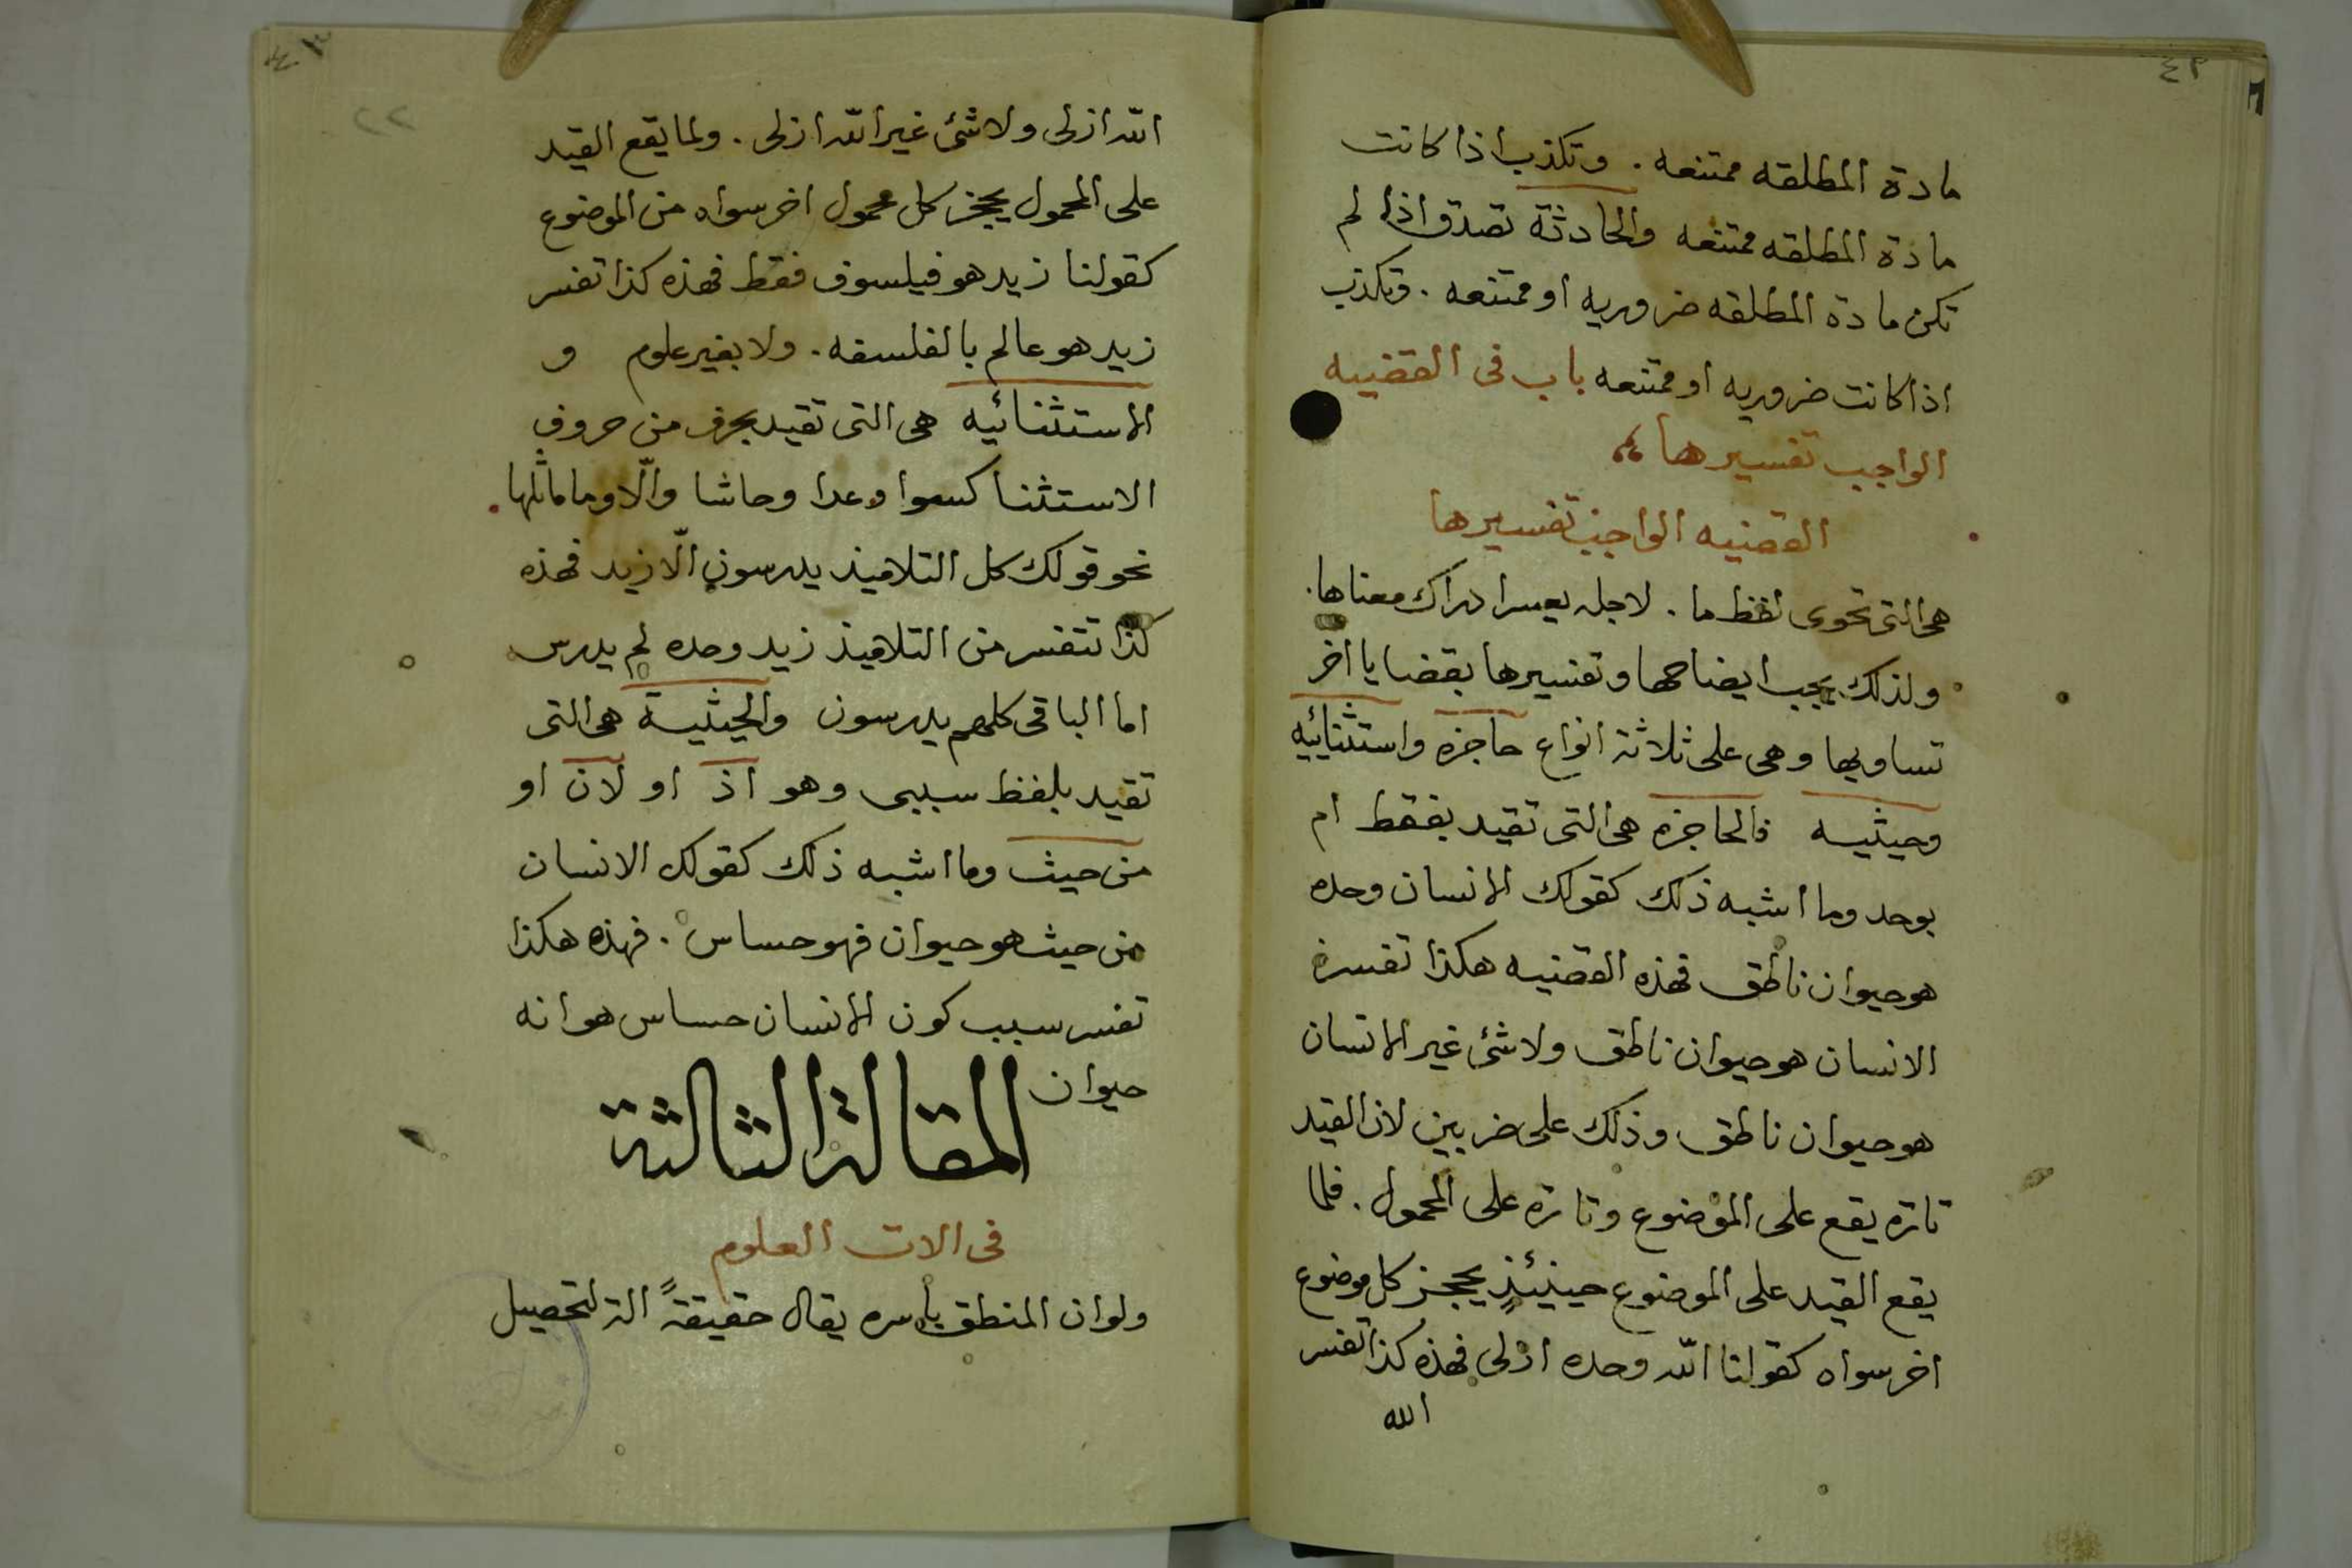 ٤٢
مادة المطلقه ممتنعه . وتكذب اذا كانت
مادة المطلقه ممتنعه والحادثة تصدق اذا لم
تكن مادة المطلقه ضروريه او ممتنعه . وتكذب
اذا كانت ضروريه او ممتنعه باب فى القضيه
الواجب تفسيرها
القضيه الواجب تفسيرها
هى التى تحوى لفظ ما . لاجله يعسر ادراك معناها .
ولذلك يجب ايضاحها وتفسيرها بقضايا اخر
تساويها وهى على ثلاثة انواع حاجزه واستثنائيه
وحيثيه فالحاجزه هى التى تقيد بفقط ام
بوحد وما اشبه ذلك كقولك الانسان وحده
هو حيوان ناطق فهذه القضيه هكذا تفسرة
الانسان هو حيوان ناطق ولا شئ غير الانسان
هو حيوان ناطق وذلك على ضربين لان القيد
تارة يقع على الموضوع وتارة على المحمول . فلما
يقع القيد على الموضوع حينيئذٍ يحجز كل موضوع
اخر سواه كقولنا الله وحده ازلى فهذه كذا تفسر
الله
٤٣
٢٢
الله ازلى ولا شئ غير الله ازلى . ولما يقع القيد
على المحمول يحجز كل محمول اخر سواه من الموضوع
كقولنا زيد هو فيلسوف فقط فهذه كذا تفسر
زيد هو عالم بالفلسفه . ولا بغير علوم و
الاستثنائيه هى التى تقيد بحرف من حروف
الاستثنا كسوا وعدا وحاشا والّا وما ماثلها
نحو قولك كل التلاميذ يدرسون الّا زيد فهذه
كذا تتفسر من التلاميذ زيد وحده لم يدرس
اما الباقى كلهم يدرسون والحيثية هى التى
تقيد بلفظ سببى وهو اذ او لان او
من حيث وما اشبه ذلك كقولك الانسان
من حيث هو حيوان فهو حساس . فهذه هكذا
تفسر سبب كون الانسان حساس هو انه
حيوان
المقالة الثالثة
فى الات العلوم
ولو ان المنطق بأسره يقال حقيقةً الة لتحصيل